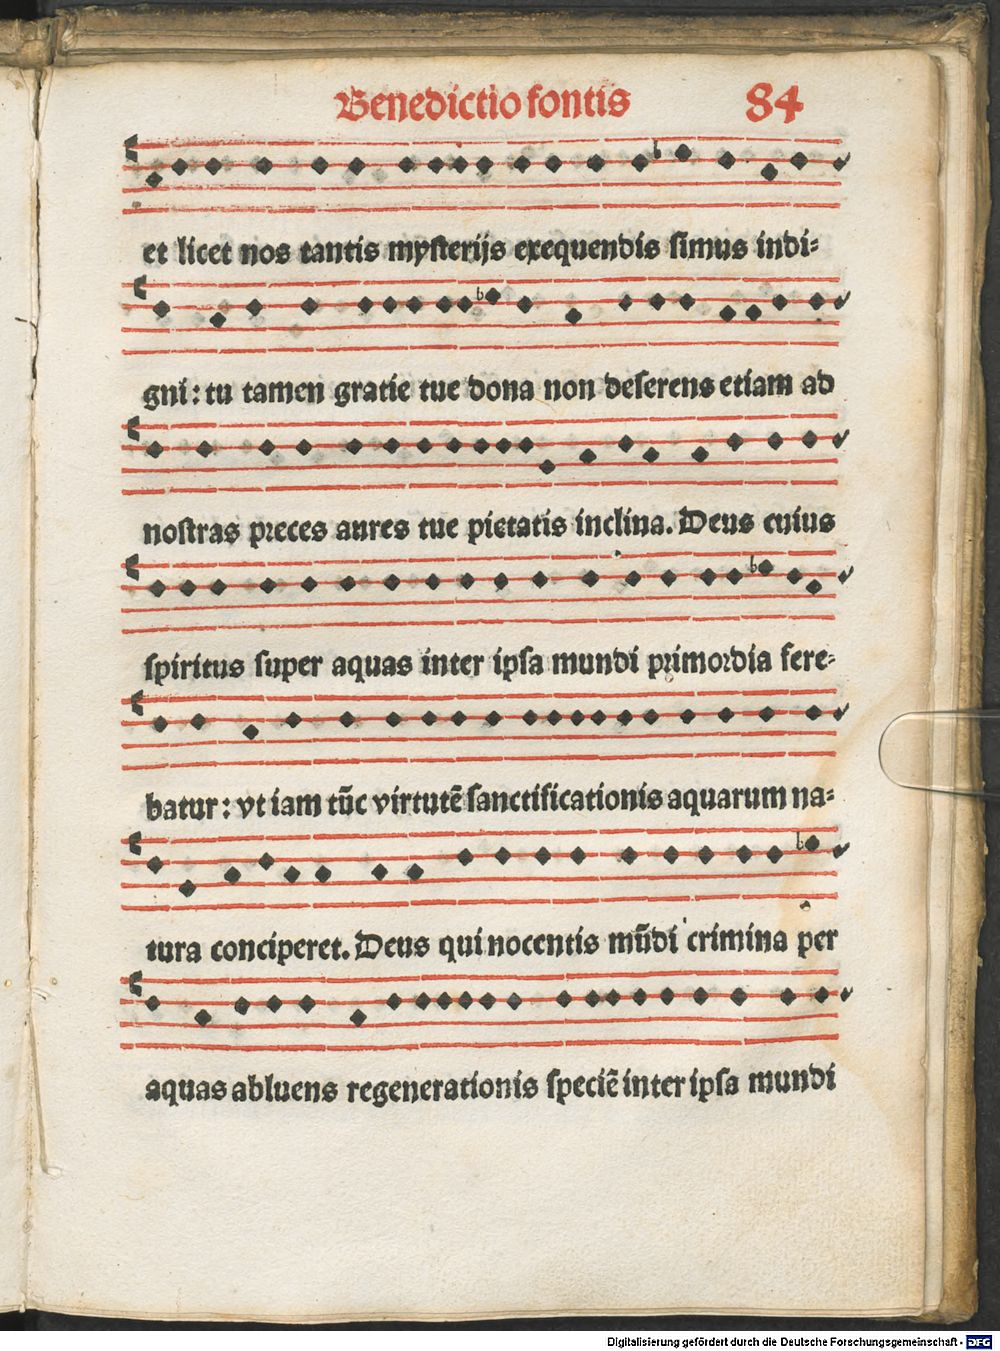 Benedictio fontis 84
et licet nos tantis mysterijs exequendis simus indi-
gni: tu tamen gratie tue dona non deserens etiam ad
nostras preces aures tue pietatis inclina. Deus cuius
spiritus super aquas inter ipsa mundi primordia fere-
batur: vt iam tūc virtutē sanctificationis aquarum na-
tura conciperet. Deus qui nocentis mūdi crimina per
aquas abluens regenerationis speciē inter ipsa mundi
Digitalisierung gefördert durch die Deutsche Forschungsgemeinschaft - DFG